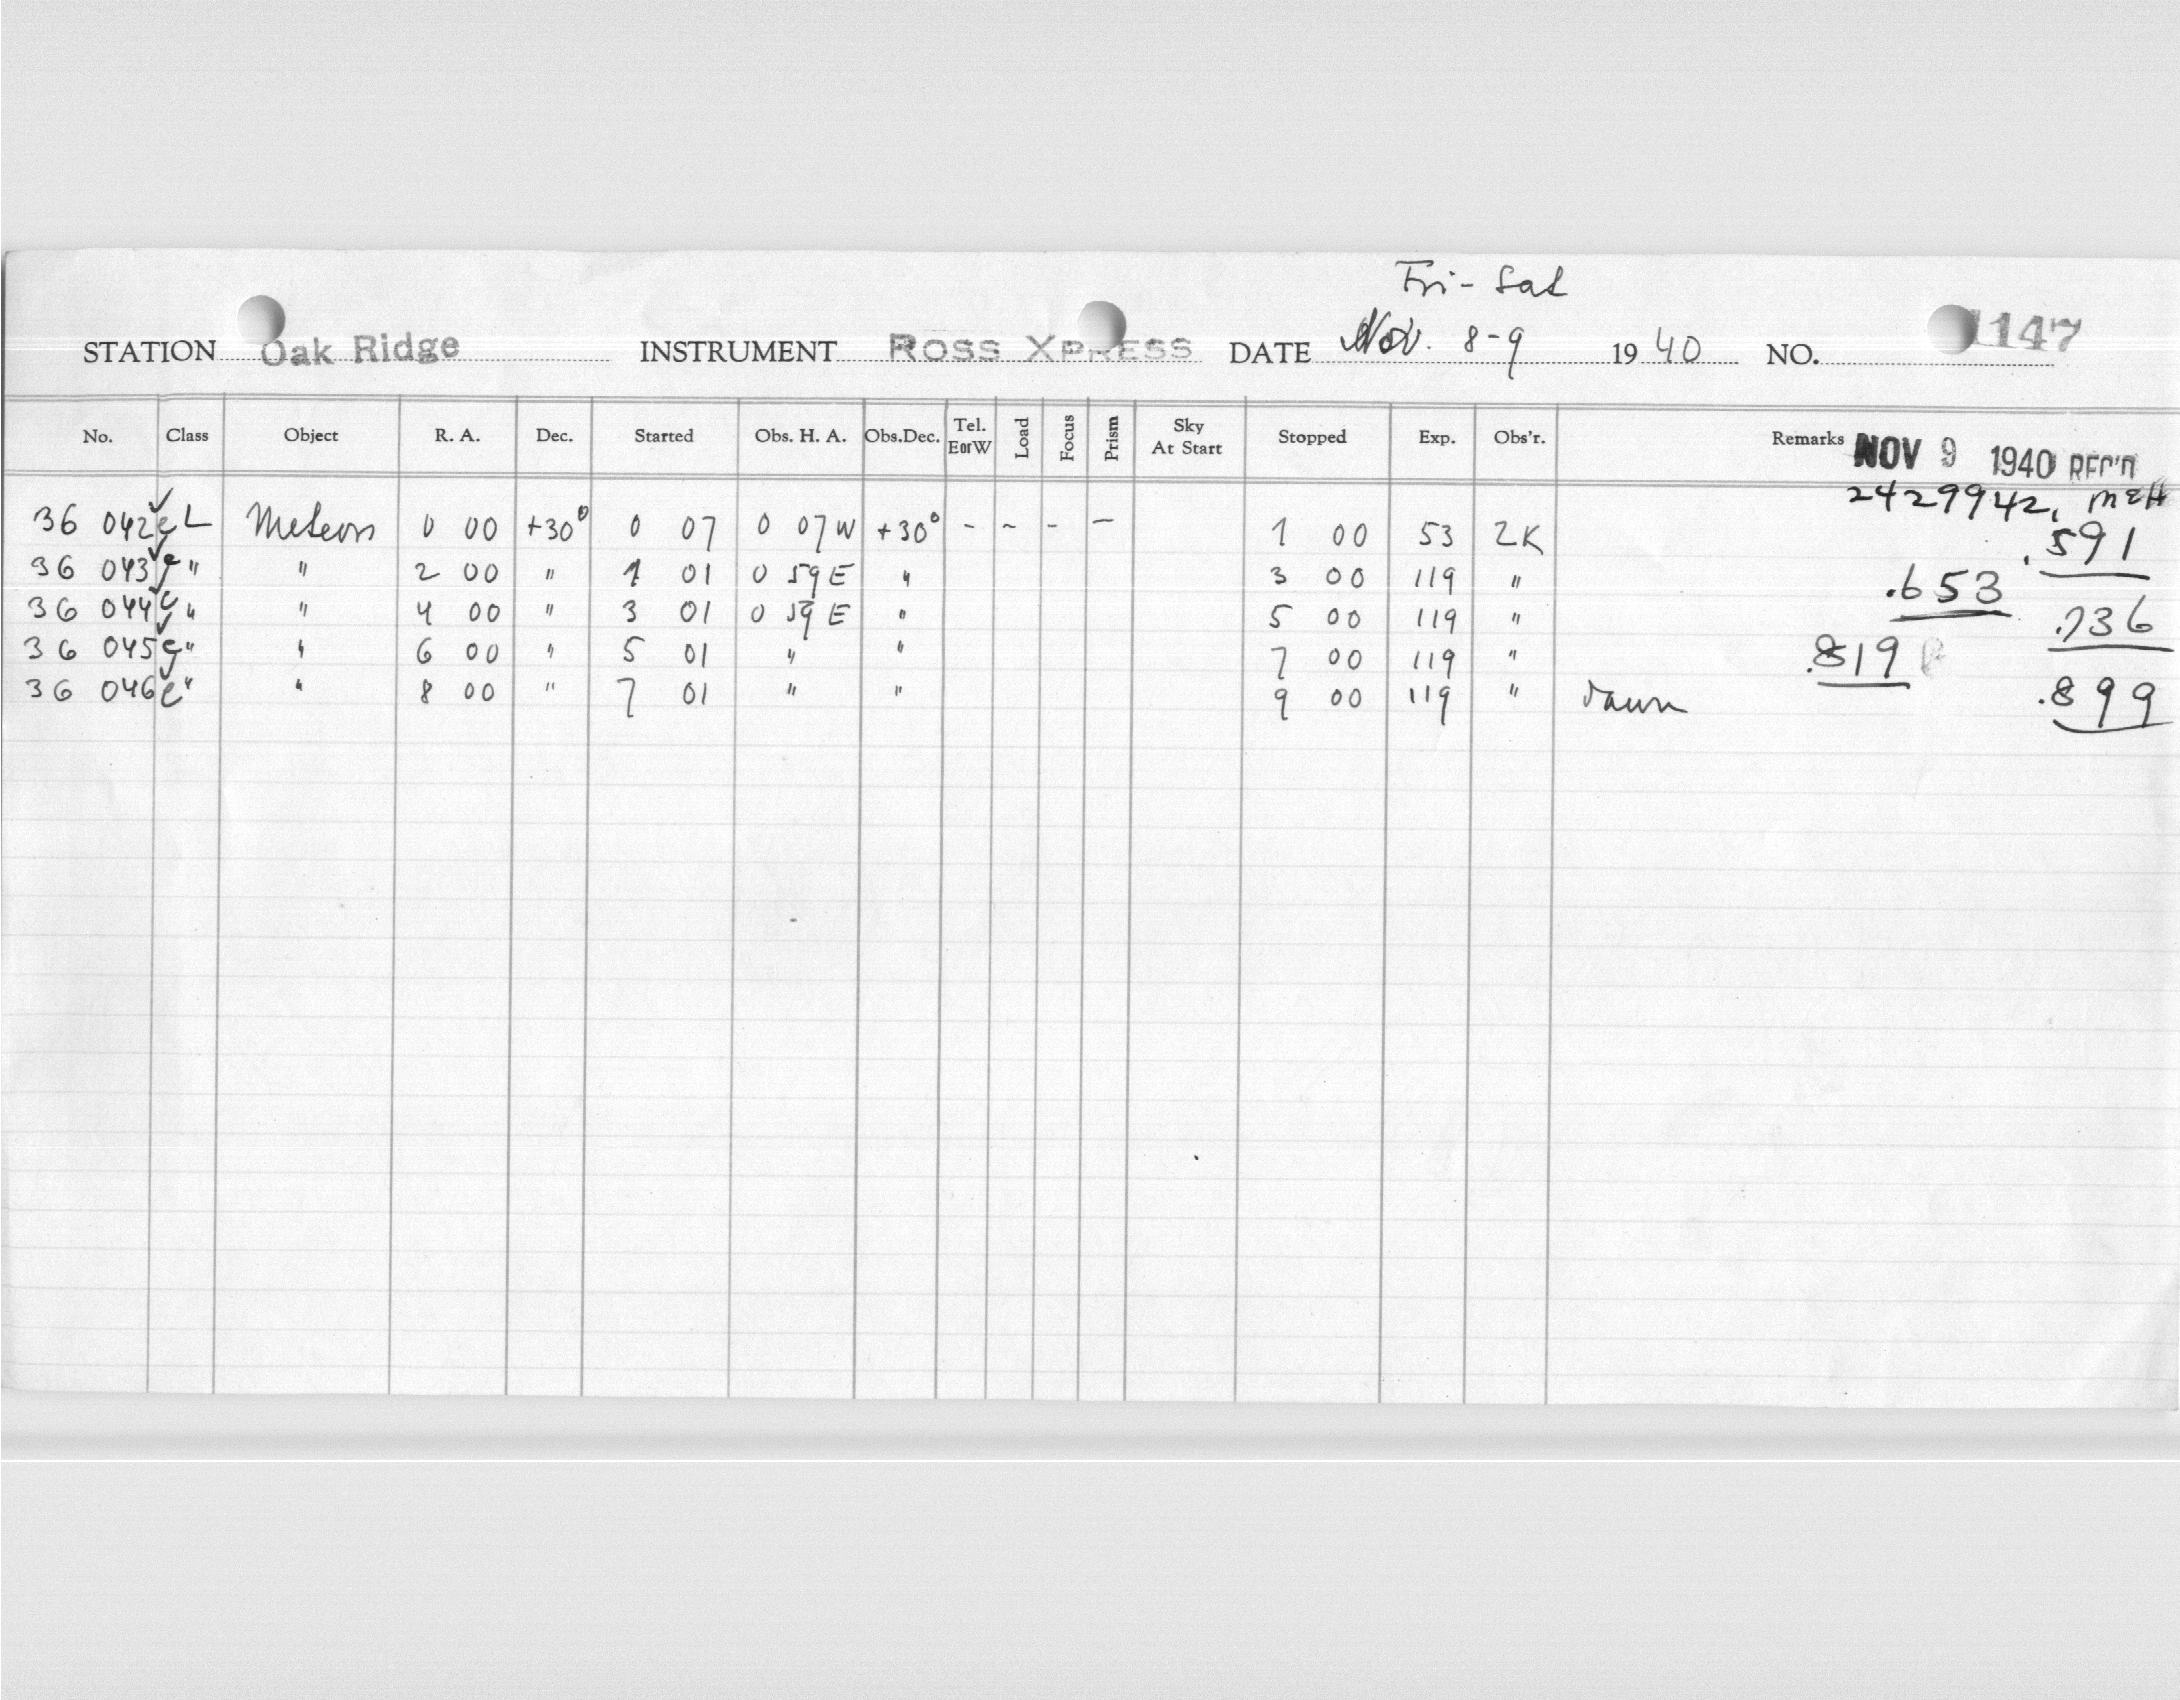 Fri - Sat
STATION Oak Ridge INSTRUMENT ROSS XPRESS DATE Nov. 8-9 1940 NO. 1147
No. Class Object R. A. Dec. Started Obs. H. A. Obs.Dec. Tel. EorW Load Focus Prism Sky At Start Stopped Exp. Obs'r. Remarks NOV 9 1940 REC'D
2429942. MEH
36 042 e L Meteors 0 00 +30° 0 07 0 07 W +30° - ~ - - 1 00 53 ZK .591
36 043 " " 2 00 " 1 01 0 59 E " 3 00 119 " .653
36 044 e " " 4 00 " 3 01 0 59 E " 5 00 119 " .736
36 045 e " " 6 00 " 5 01 " " 7 00 119 " .819
36 046 e " " 8 00 " 7 01 " " 9 00 119 " Dawn .899